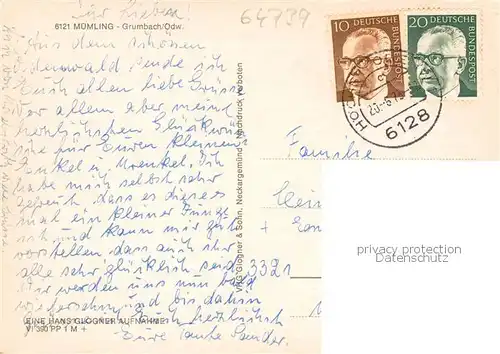 Ihr Lieben!
64739
6121 MÜMLING - Grumbach/Odw.
Aus dem schönen
Odenwald sende ich
Euch allen liebe Grüsse
Vor allem aber meine
herzlichsten Glückwün
sche zur Euren kleinen
Enkel u Urenkel. Ich
habe mich selbst sehr
gefreut, dass es dieses
mal ein kleiner Junge
ist und kann mir gut
vorstellen, dass auch ihr
alle sehr glücklich seid.
Wir werden uns nun bald
wiedersehn und bis dahin
Euch herzlichst
Eure Tante
EINE HANS GLOGNER AUFNAHME
VI 390 PP 1 M +
Glogner & Sohn, Neckargemünd Nachdruck verboten
10 DEUTSCHE BUNDESPOST
20 DEUTSCHE BUNDESPOST
6128
Familie
+
3321
privacy protection
Datenschutz